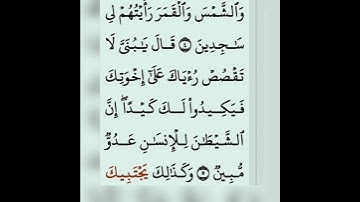 وَٱلشَّمۡسَ وَٱلۡقَمَرَ رَأَيۡتُهُمۡ لِي
سَٰجِدِينَ ٤ قَالَ يَٰبُنَيَّ لَا
تَقۡصُصۡ رُءۡيَاكَ عَلَىٰٓ إِخۡوَتِكَ
فَيَكِيدُواْ لَكَ كَيۡدًاۖ إِنَّ
ٱلشَّيۡطَٰنَ لِلۡإِنسَٰنِ عَدُوّٞ
مُّبِينٞ ٥ وَكَذَٰلِكَ يَجۡتَبِيكَ